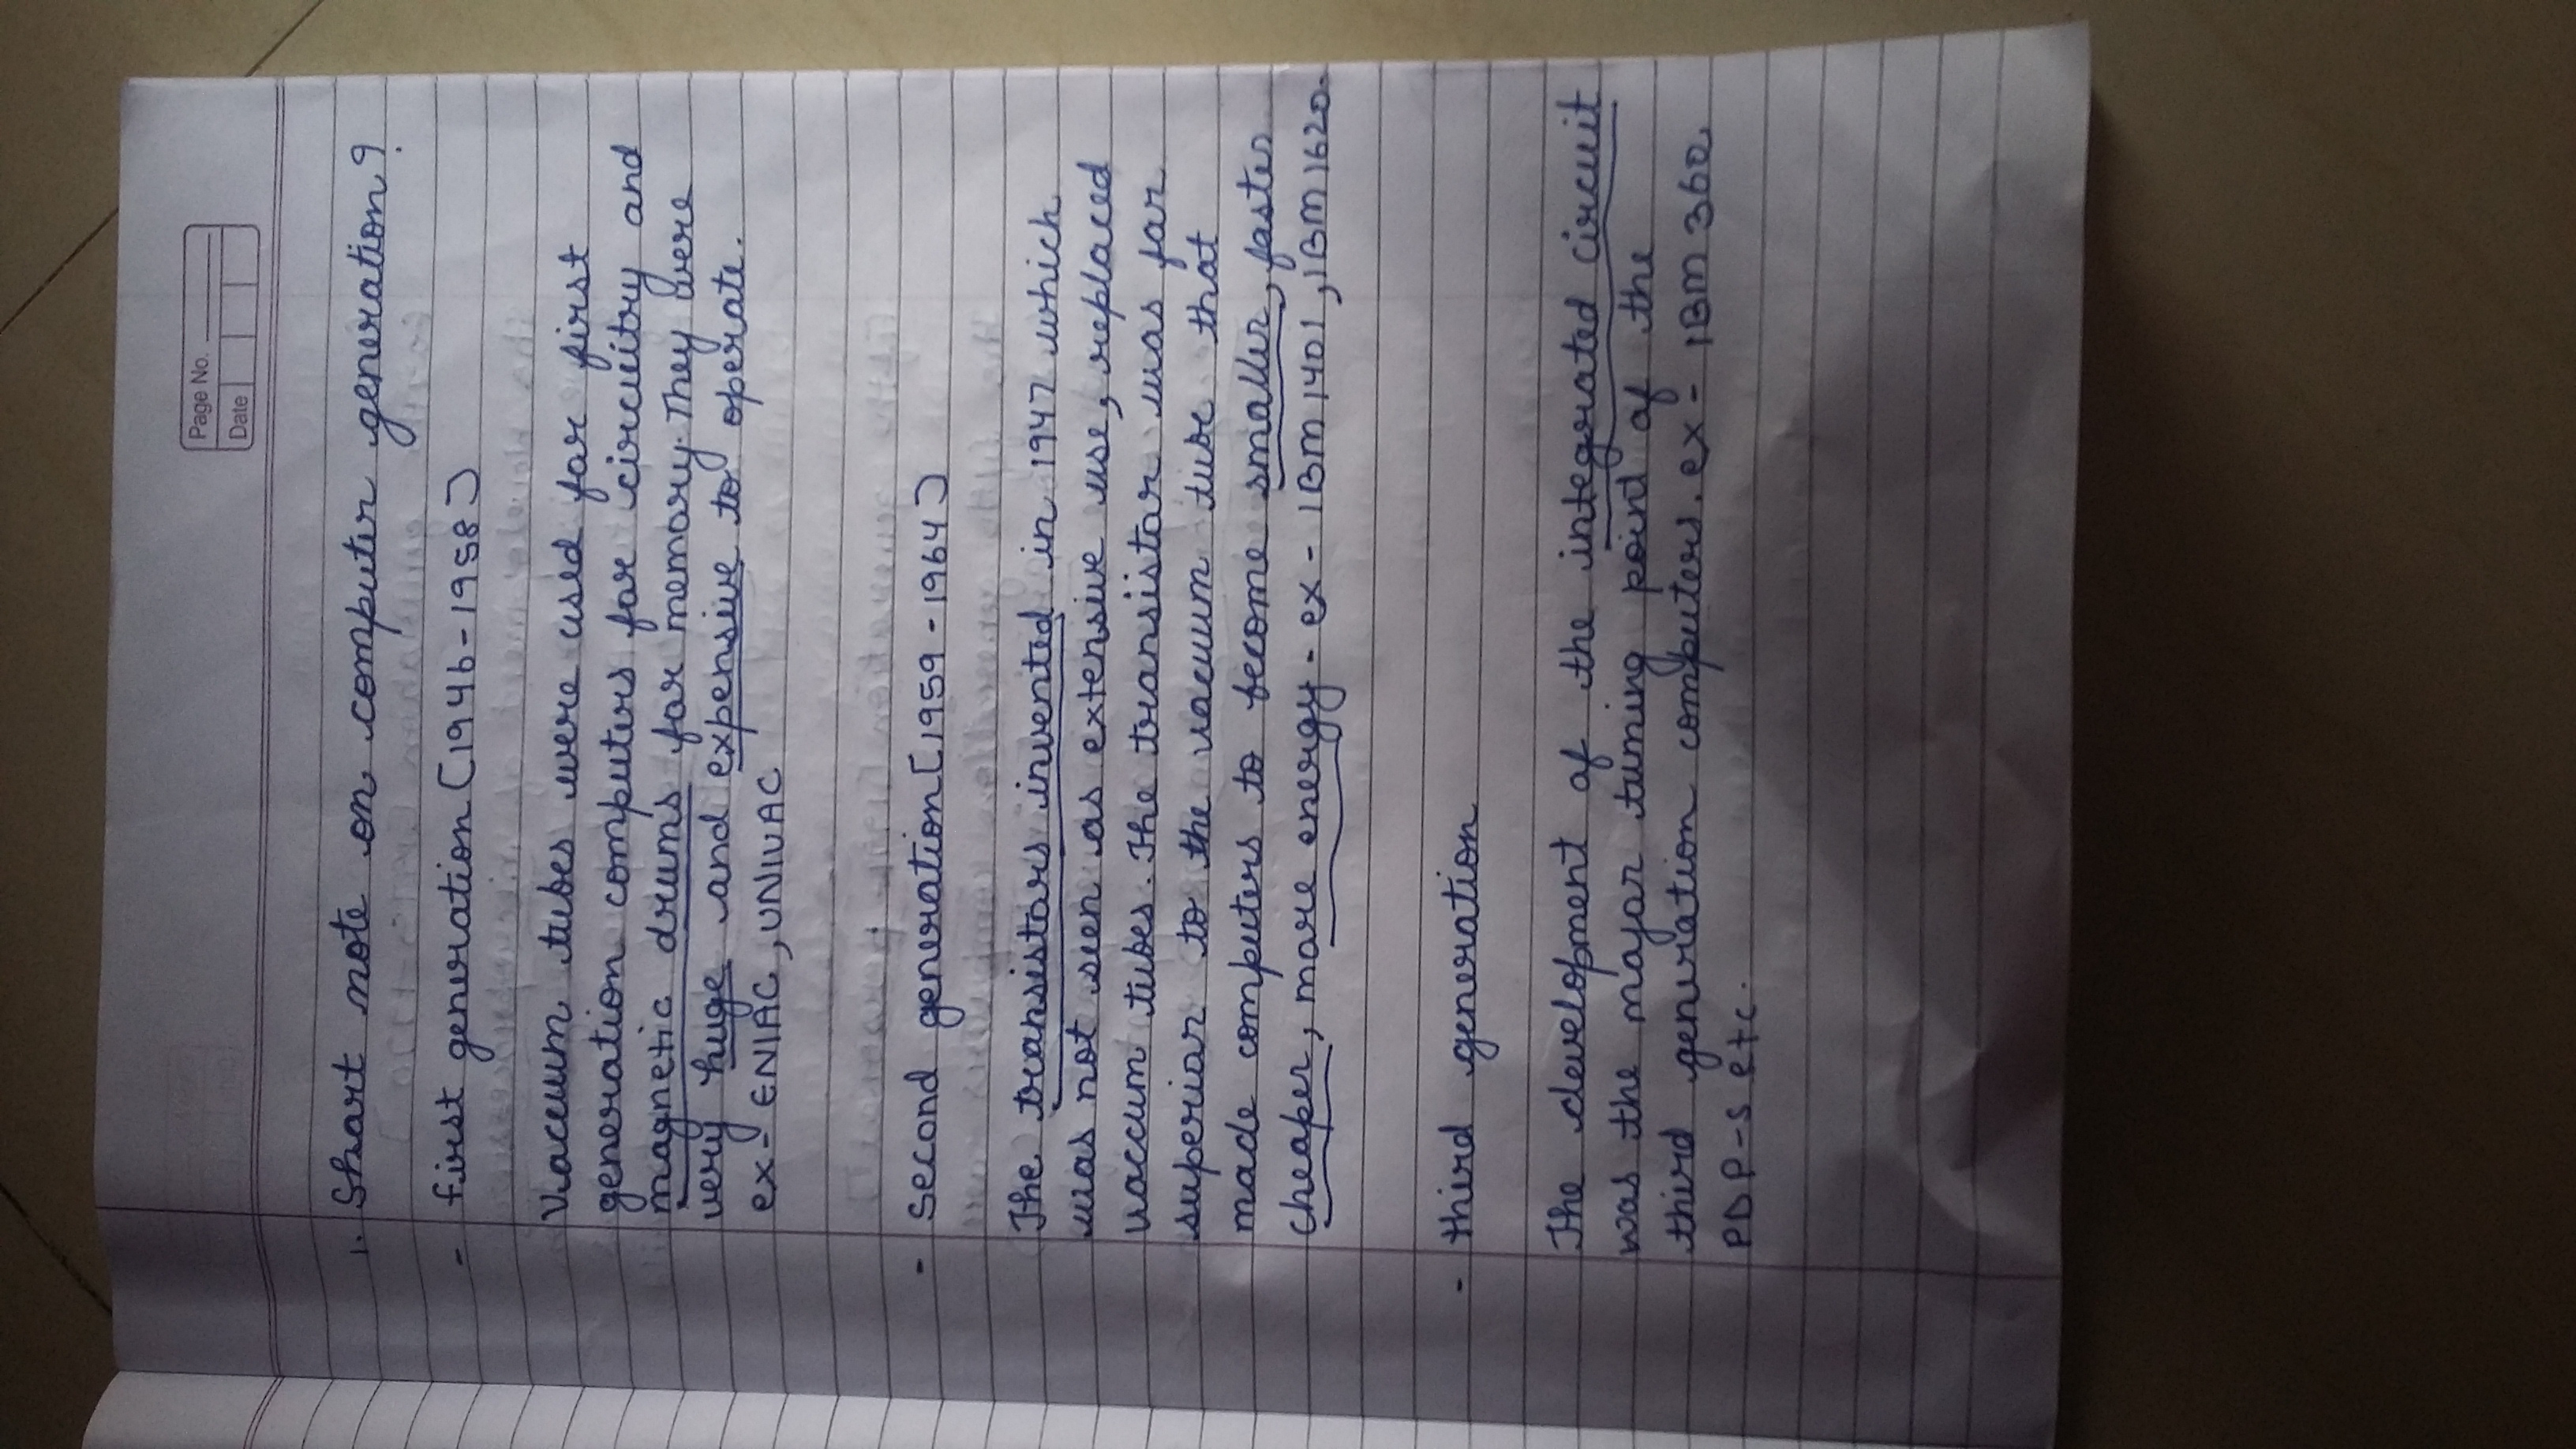 Page No.
Date
1. Short note on computer generation?
- first generation [1946-1958]
Vacuum tubes were used for first
generation computers for circuitry and
magnetic drums for memory. They were
very huge and expensive to operate.
ex- ENIAC, UNIVAC
- second generation [1959-1964]
The transistors invented in 1947 which
was not seen as extensive use, replaced
vaccum tubes. The transistor was far
superior to the vacuum tube that
made computers to become smaller, faster
cheaper, more energy - ex - IBM 1401, IBM 1620.
- third generation
The development of the integrated circuit
was the major turning point of the
third generation computers. ex - IBM 360
PDP-S etc.